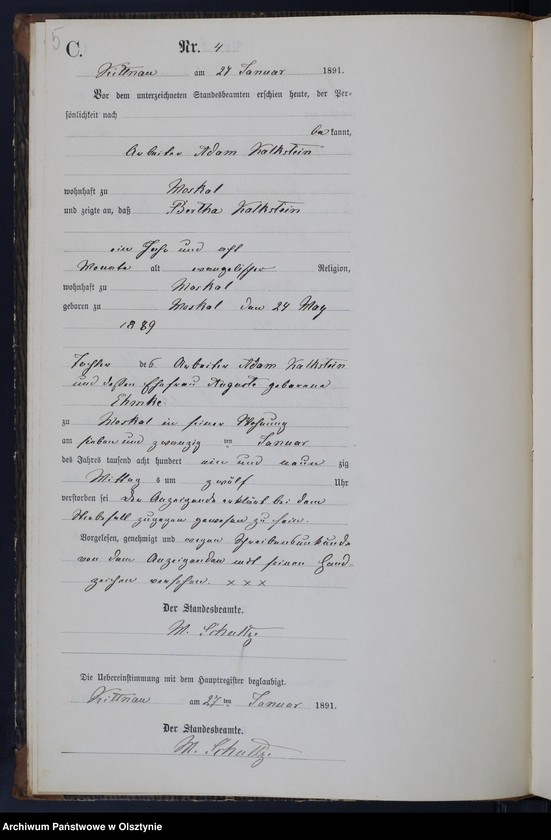 5
C.
Nr. 4
Kittnau am 27 Januar 1891.
Vor dem unterzeichneten Standesbeamten erschien heute, der Per-
sönlichkeit nach
bekannt,
Arbeiter Adam Kalkstein
wohnhaft zu Moskal
und zeigte an, daß Bertha Kalkstein
ein Jahr und acht
Monate alt evangelischer Religion,
wohnhaft zu Moskal
geboren zu Moskal den 24 May
1889
Tochter des Arbeiter Adam Kalkstein
und dessen Ehefrau Auguste geborene
Ehmke
zu Moskal in seiner Wohnung
am sieben und zwanzig ten Januar
des Jahres tausend acht hundert ein und neun zig
Mittags um zwölf Uhr
verstorben sei Der Anzeigende erklärt bei dem
Sterbefall zugegen gewesen zu sein.
Vorgelesen, genehmigt und wegen Schreibenunkunde
von dem Anzeigenden mit seinen Hand-
zeichen versehen. x x x
Der Standesbeamte.
M. Schultz
Die Uebereinstimmung mit dem Hauptregister beglaubigt.
Kittnau am 27 ten Januar 1891.
Der Standesbeamte.
M. Schultz
Archiwum Państwowe w Olsztynie